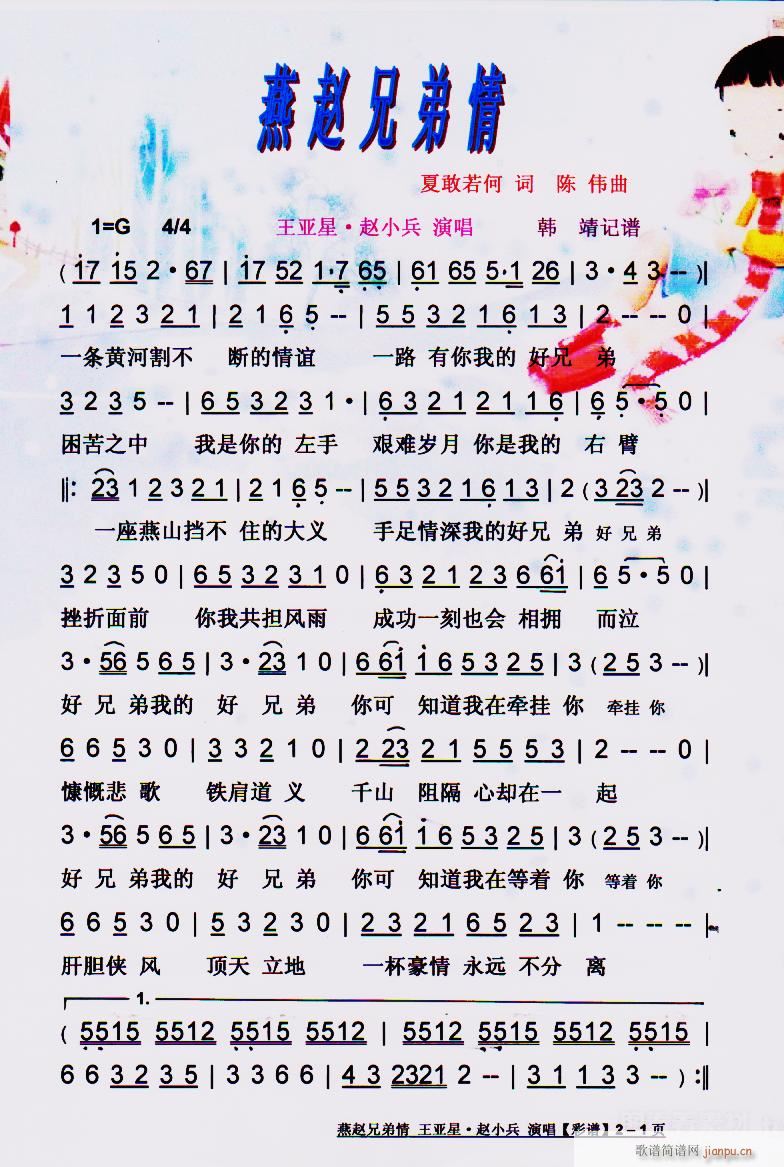 燕赵兄弟情
夏敢若何 词 陈 伟曲
1=G 4/4 王亚星·赵小兵 演唱 韩 靖记谱
( 17 15 2·67 | 17 52 1·7 65 | 61 65 5·1 26 | 3·4 3-- )||
1 1 2 3 2 1 | 2 1 6 5 -- | 5 5 3 2 1 6 1 3 | 2 -- 0 |
一条黄河割不 断的情谊 一路 有你我的 好兄 弟
3 2 3 5 -- | 6 5 3 2 3 1· | 6 3 2 1 2 1 1 6 | 6 5·5 0 |
困苦之中 我是你的 左手 艰难岁月 你是我的 右 臂
||: 23 1 2 3 2 1 | 2 1 6 5 -- | 5 5 3 2 1 6 1 3 | 2 ( 3 23 2 -- )||
一座燕山挡不 住的大义 手足情深我的好兄 弟 好 兄 弟
3 2 3 5 0 | 6 5 3 2 3 1 0 | 6 3 2 1 2 3 6 61 | 6 5·5 0 |
挫折面前 你我共担风雨 成功一刻也会 相拥 而泣
3·56 5 6 5 | 3·23 1 0 | 6 61 1 6 5 3 2 5 | 3 ( 2 5 3 -- )||
好 兄 弟我的 好 兄 弟 你可 知道我在牵挂 你 牵挂 你
6 6 5 3 0 | 3 3 2 1 0 | 2 23 2 1 5 5 5 3 | 2 -- -- 0 |
慷慨悲 歌 铁肩道 义 千山 阻隔 心却在一 起
3·56 5 6 5 | 3·23 1 0 | 6 61 1 6 5 3 2 5 | 3 ( 2 5 3 -- )||
好 兄 弟我的 好 兄 弟 你可 知道我在等着 你 等着 你
6 6 5 3 0 | 2 3 5 5 0 | 2 3 2 1 6 5 2 3 | 1 -- -- -- |
肝胆侠 风 顶天 立地 一杯豪情 永远 不分 离
1.
( 5515 5512 5515 5512 | 5515 5512 5515 5515 |
6 6 3 2 3 5 | 3 3 6 6 | 4 3 2321 2 -- | 3 1 1 3 -- ) :||
燕赵兄弟情 王亚星·赵小兵 演唱【彩谱】2－1页
歌谱简谱网
jianpu.cn